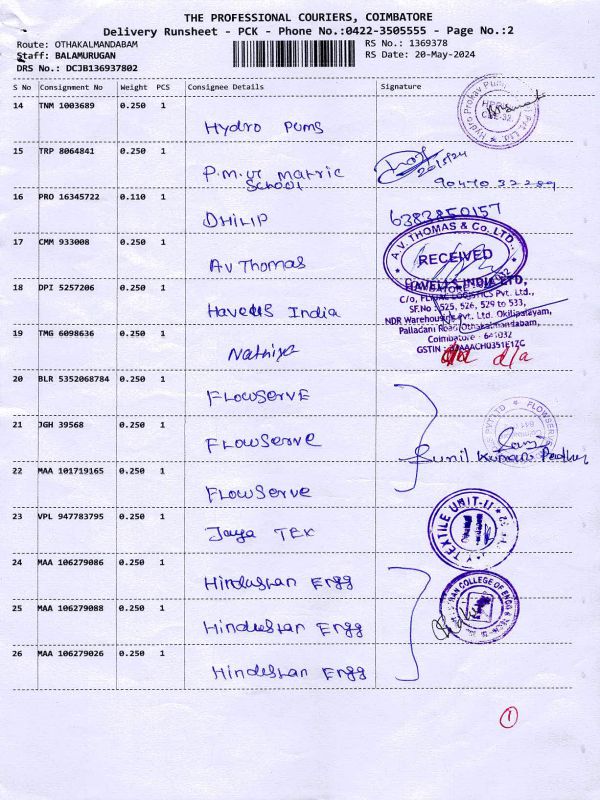 THE PROFESSIONAL COURIERS, COIMBATORE
Delivery Runsheet - PCK - Phone No.:0422-3505555 - Page No.:2
Route: OTHAKALMANDABAM
RS No.: 1369378
Staff: BALAMURUGAN
RS Date: 20-May-2024
DRS No.: DCJB136937802
S No Consignment No Weight PCS Consignee Details Signature
14 TNM 1003689 0.250 1
Hydro Pums
15 TRP 8064841 0.250 1
P.m.ur matric
School
20/5/24
90470 32289
16 PRO 16345722 0.110 1
DHILIP
6383850157
17 CMM 933008 0.250 1
AV Thomas
A.V. THOMAS & Co. LTD.,
RECEIVED
18 DPI 5257206 0.250 1
Havells India
HAVELLS INDIA LTD,
C/o, LOGISTICS Pvt. Ltd.,
SF.No : 525, 526, 529 to 533,
NDR Warehousing Pvt. Ltd. Okilipalayam,
Palladam Road, Othakalmandabam,
Coimbatore - 641032
GSTIN : AAACH0351E1ZC
19 TMG 6098636 0.250 1
Nathiya
d/a d/a
20 BLR 5352068784 0.250 1
FLOWSERVE
21 JGH 39568 0.250 1
FLOWSERVE
FLOWSERVE
PVT LTD
Sunil Kumar Padhy
22 MAA 101719165 0.250 1
FLOWSERVE
23 VPL 947783795 0.250 1
Jaya TEX
TEXTILE UNIT-II
24 MAA 106279086 0.250 1
Hindustan Engg
COLLEGE OF ENGG
25 MAA 106279088 0.250 1
Hindustan Engg
26 MAA 106279026 0.250 1
Hindustan Engg
1